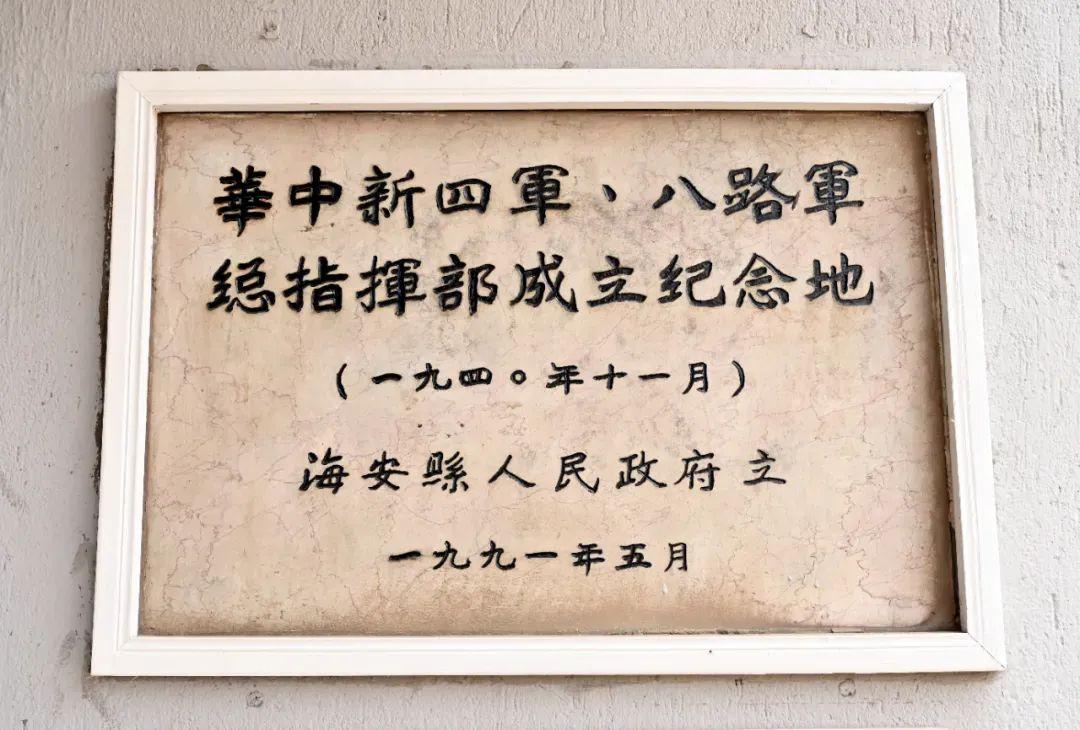 華中新四軍、八路軍
緫指揮部成立纪念地
(一九四〇年十一月)
海安縣人民政府立
一九九一年五月